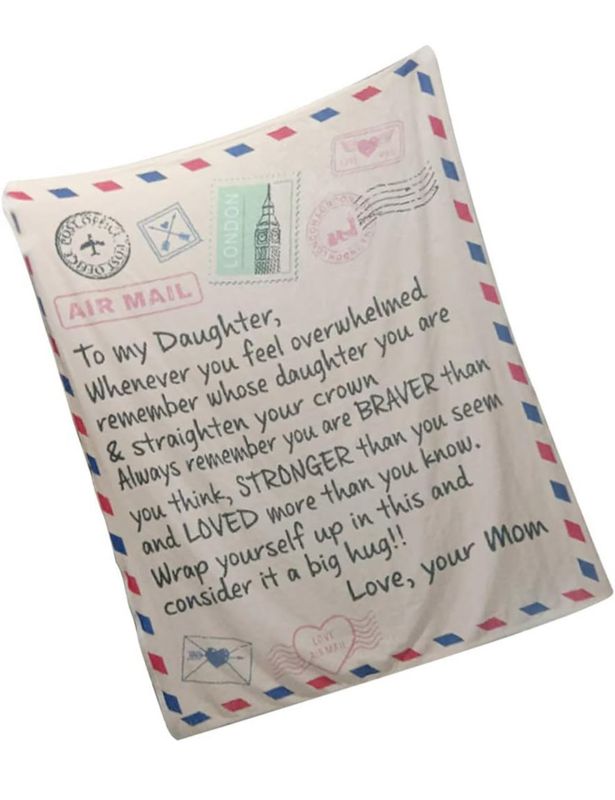 LOVE MAIL
POST OFFICE
POST OFFICE
LONDON
LONDON
AIR MAIL
To my Daughter,
Whenever you feel overwhelmed
remember whose daughter you are
& straighten your crown
Always remember you are BRAVER than
you think, STRONGER than you seem
and LOVED more than you know.
Wrap yourself up in this and
consider it a big hug!!
Love, your Mom
LOVE
AIR MAIL